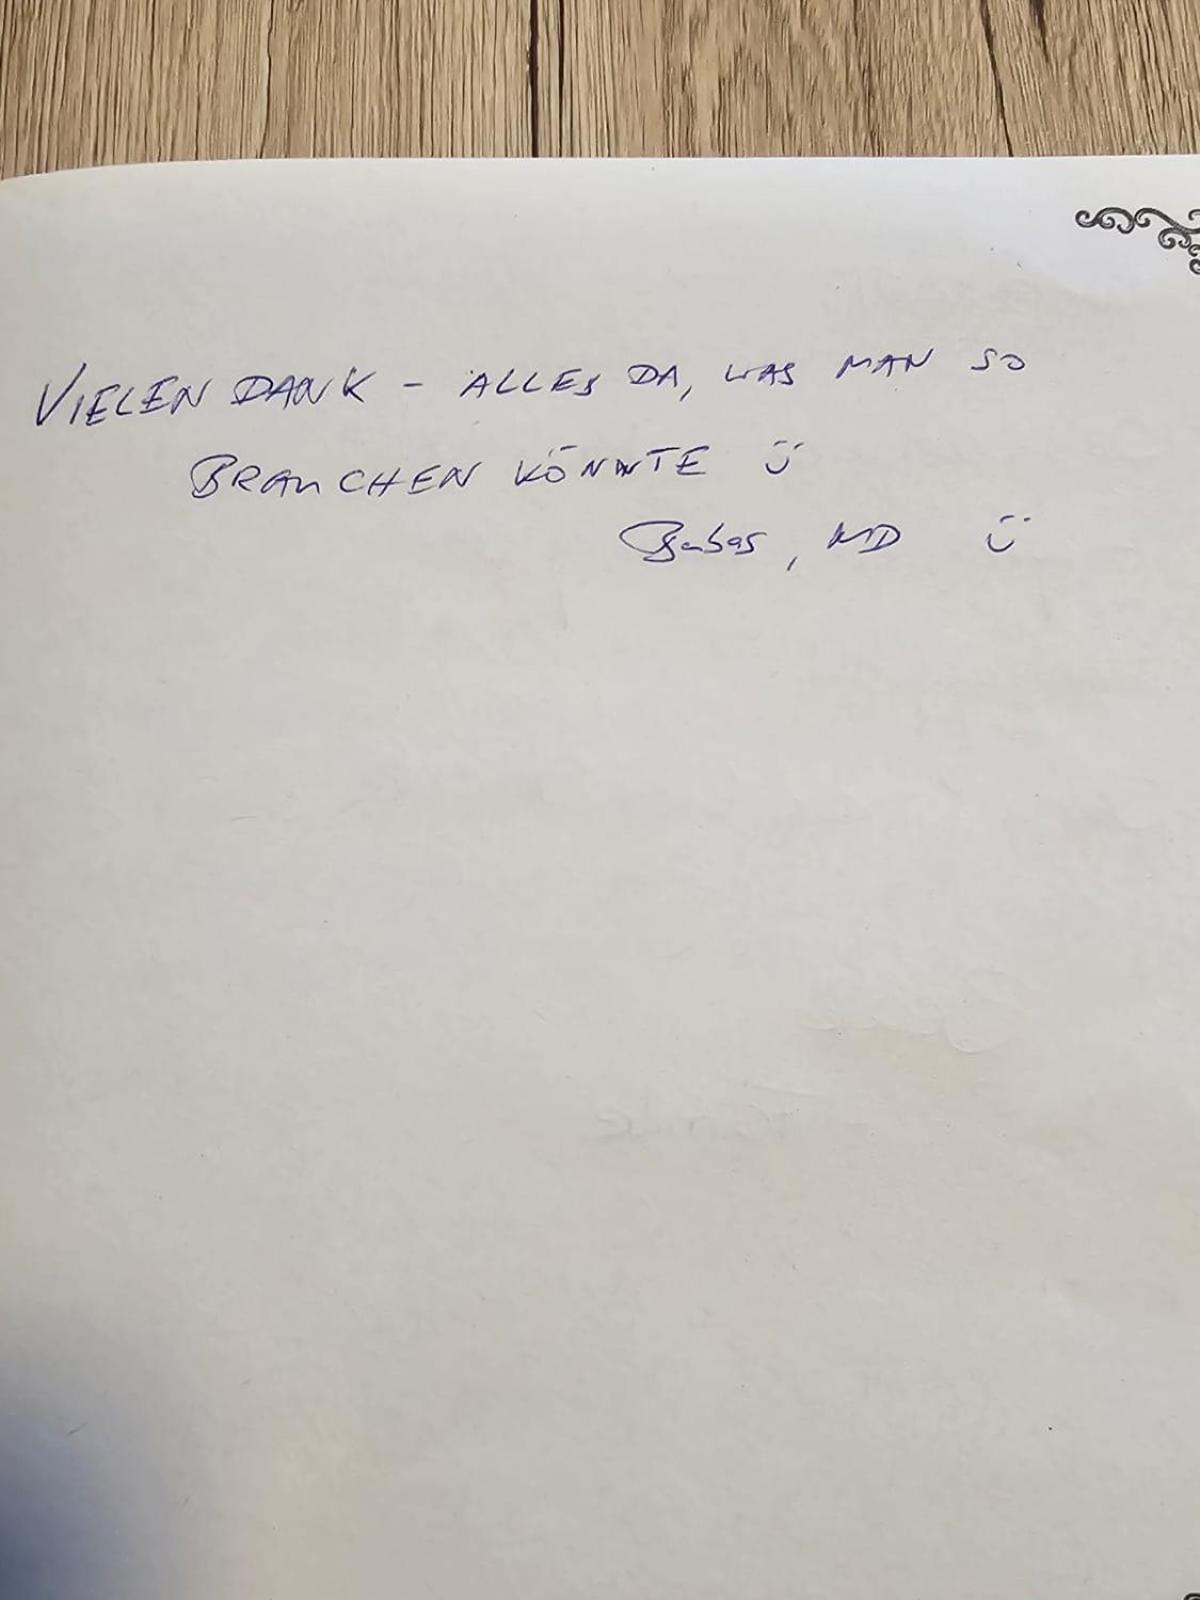 VIELEN DANK - ALLES DA, WAS MAN SO
BRAUCHEN KÖNNTE Ü
, MD Ü